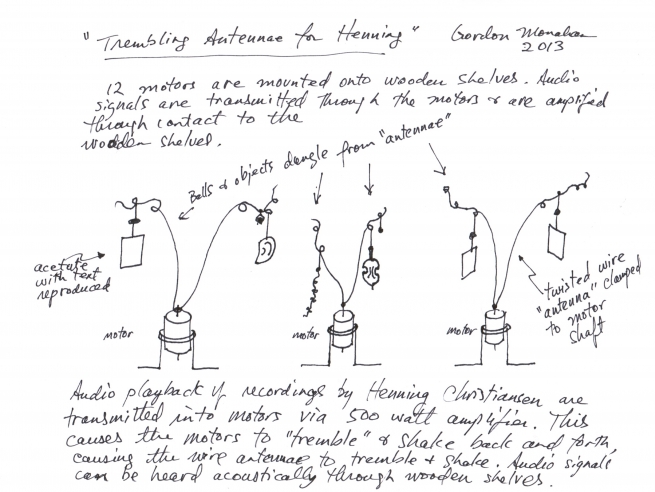 "Trembling Antennae for Henning" Gordon Monahan
2013
12 motors are mounted onto wooden shelves. Audio
signals are transmitted through the motors & are amplified
through contact to the
wooden shelves.
Bells & objects dangle from "antennae"
acetate
with text
reproduced
twisted wire
"antenna" clamped
to motor
shaft
motor
motor
motor
Audio playback of recordings by Henning Christiansen are
transmitted into motors via 500 watt amplifier. This
causes the motors to "tremble" & shake back and forth,
causing the wire antennae to tremble & shake. Audio signals
can be heard acoustically through wooden shelves.